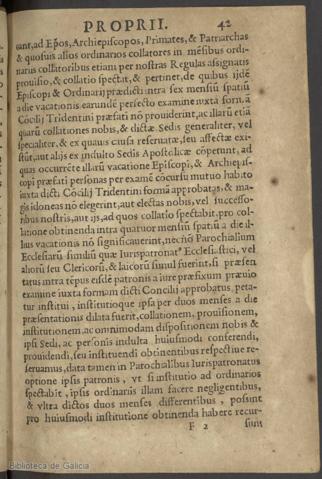 PROPRII. 42
eant, ad Ep̃os, Archiepiscopos, Primates, & Patriarchas
& quosuis alios ordinarios collatores in mẽsibus ordi-
nariis collatoribus etiam per nostras Regulas assignatis
prouisio, & collatio spectat, & pertinet, de quibus ijdẽ
Episcopi & Ordinarij prædicti intra sex mensiũ spatiũ
a die vacationis earundẽ perfecto examine iuxta formã
Cõcilij Tridentini præfati nõ prouiderint, ac illarũ etiã
quarũ collationes nobis, & dictæ Sedis generaliter, vel
specialiter, & ex quauis causa reseruatæ, seu affectæ exi-
stũt, aut alijs ex indulto Sedis Apostolicæ cõpetunt, ad
quas occurrẽte illarũ vacatione Episcopi, & Archiepis-
copi præfati personas per examẽ cõcursu mutuo habito
iuxta dicti Cõcilij Tridentini formã approbatas, & ma-
gis idoneas nõ elegerint, aut electas nobis, vel successo-
ribus nostris, aut ijs, ad quos collatio spectabit, pro col-
latione obtinenda intra quatuor mensiũ spatiũ a die il-
lius vacationis nõ significauerint, necñõ Parochialium
Ecclesiarũ similiũ quæ Iurispatronatꝰ Ecclesiastici, vel
aliorũ seu Clericorũ, & laicorũ simul fuerint, si præsen
tatus intra tẽpus eisdẽ patronis a iure præfixum præuio
examine iuxta formam dicti Concilij approbatus, peta-
tur institui, institutioque ipsa per duos menses a die
præsentationis dilata fuerit, collationem, prouisionem,
institutionem, ac omnimodam dispositionem nobis &
ipsi Sedi, ac personis indulta huiusmodi conferendi,
prouidendi, seu instituendi obtinentibus respectiue re-
seruamus, data tamen in Parochialibus Iurispatronatus
optione ipsis patronis, vt si institutio ad ordinarios
spectabit, ipsis ordinariis illam facere negligentibus,
& vltra dictos duos menses differentibus, possint
pro huiusmodi institutione obtinenda habere recur-
F 2 sum
Biblioteca de Galicia